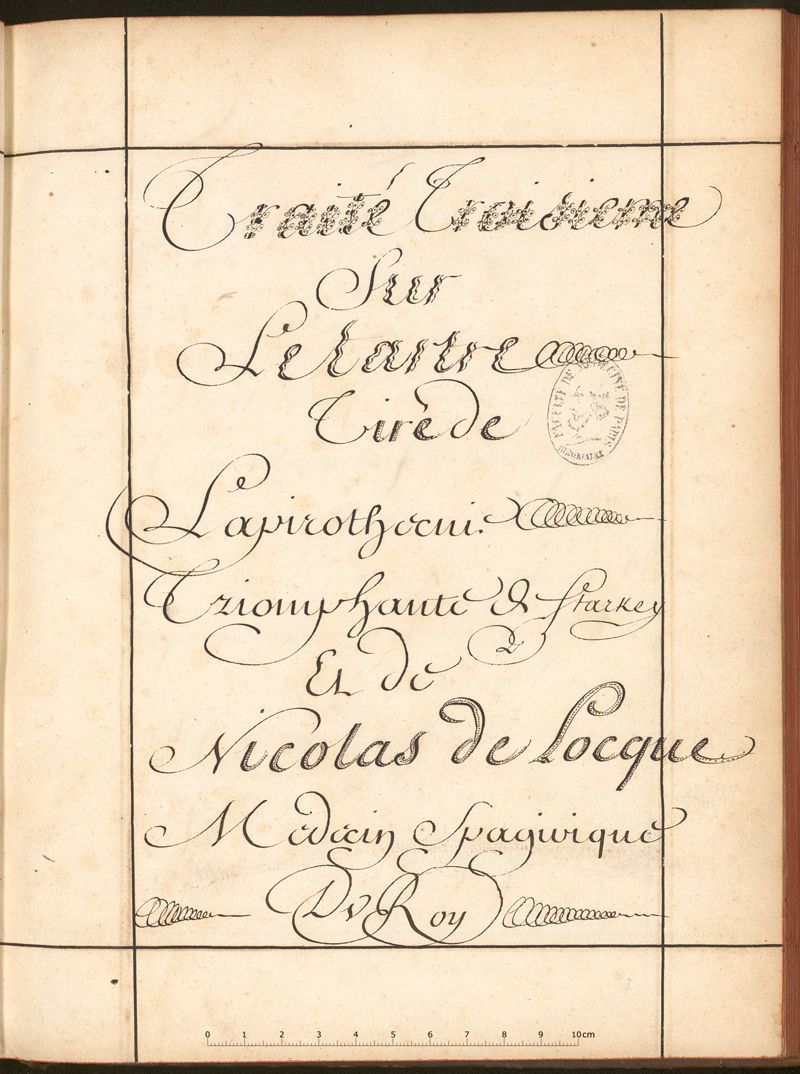 Traité Troisieme
Sur
Le tartre
Tiré de
Lapirothecnie
Triomphante & Starkey
Et de
Nicolas de Locque
Medecin Spagirique
Du Roy
FACULTÉ DE MÉDECINE DE PARIS
BIBLIOTHÈQUE
0 1 2 3 4 5 6 7 8 9 10cm